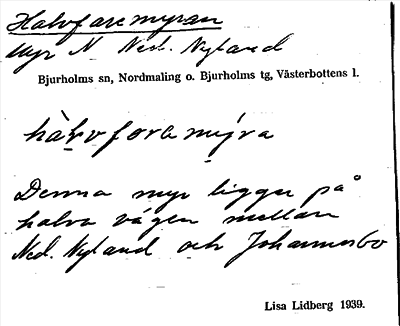 Halvfaremyran
myr N Ned. Nyland
Bjurholms sn, Nordmaling o. Bjurholms tg, Västerbottens l.
hàḷvforamy̆ra
Denna myr ligger på
halva vägen mellan
Ned. Nyland och Johannesbo
Lisa Lidberg 1939.